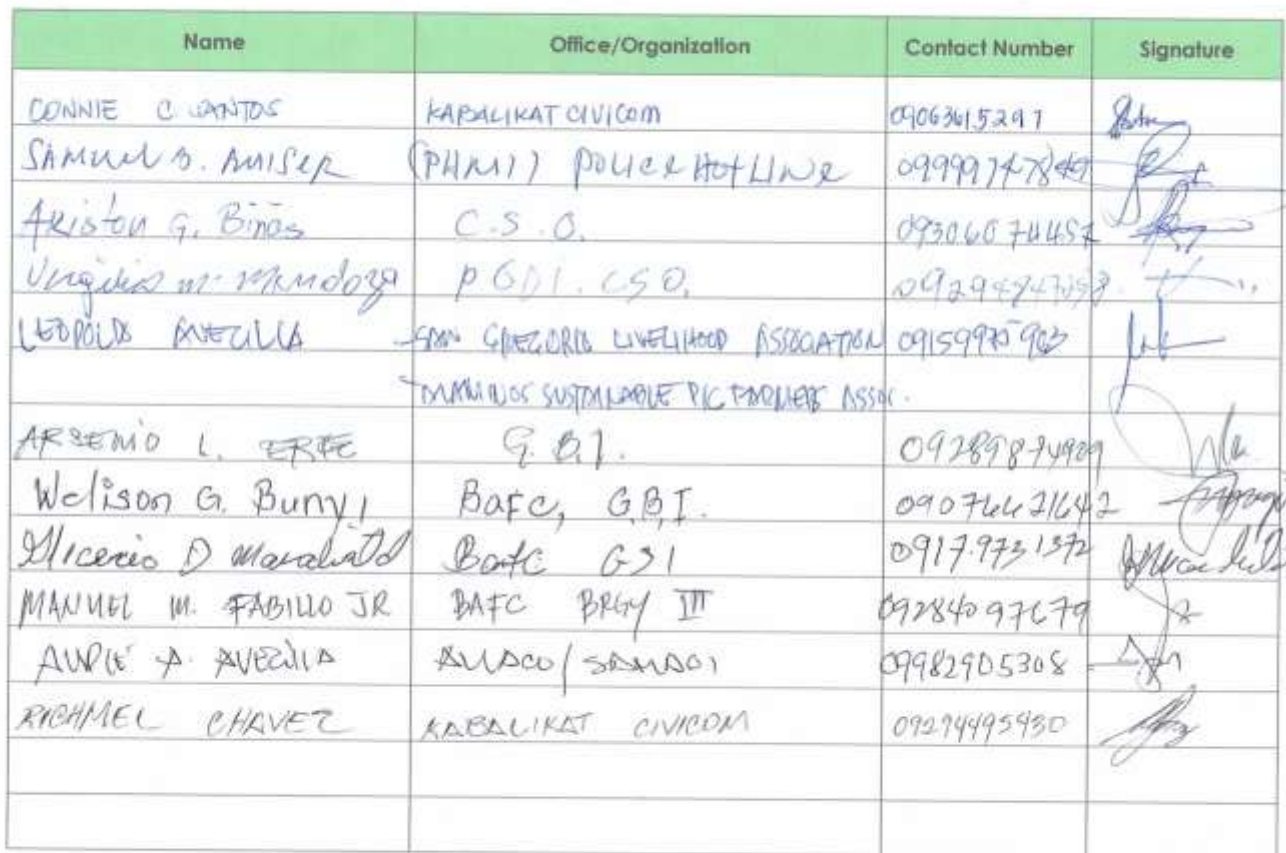 Name Office/Organization Contact Number Signature
CONNIE C. SANTOS KABALIKAT CIVICOM 09063615297
SAMUEL B. AMISER (PHMI) POLICE HOTLINE 09999747849
Ariston G. Binas C.S.O. 09306074457
Virgilio M. Mendoza PGDI. CSO.
LEOPOLDO AVECILLA - SAN GREGORIO LIVELIHOOD ASSOCIATION 09159975903
- SUSTAINABLE PIG FARMERS ASSOC.
ARSENIO L. ERFE G.B.I. 09289874929
Welison G. Bunyi BaFC, G.B.I. 09076621642
Glicerio D BaFC GSI 0917.9731372
MANUEL M. FABILLO JR BAFC BRGY III 09284097679
AURIE A. AVECILLA 09982905308
RICHMEL CHAVEZ KABALIKAT CIVICOM 09294495930